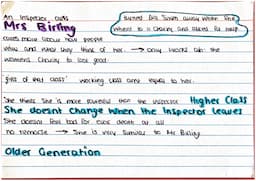 An Inspector calls
Mrs Birling
turned Eva Smith away when she
went to a charity and asked for help
cares more about how people
view and what they think of her. → only works at the
womens Charity to look good.
'girls of that class' working class aren't equal to her.
She thinks She is more powerful than the inspector Higher Class
She doesnt Change when the Inspector leaves
She doesnt feel bad for Eva's death at all
no remorse → She is very similar to Mr Birling
Older Generation